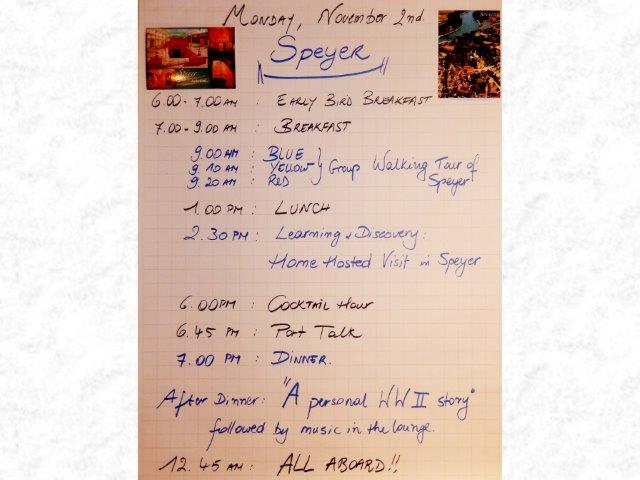 Monday, November 2nd.
Speyer
6.00 - 7.00 AM : Early Bird Breakfast
7.00 - 9.00 AM : Breakfast
9.00 AM : BLUE
9.10 AM : YELLOW } Group Walking Tour of
9.20 AM : RED Speyer
1.00 PM : LUNCH
2.30 PM : Learning & Discovery:
Home Hosted Visit in Speyer
6.00 PM : Cocktail Hour
6.45 PM : Port Talk
7.00 PM : DINNER.
After Dinner: "A personal WW II story"
followed by music in the lounge.
12.45 AM : ALL ABOARD!!